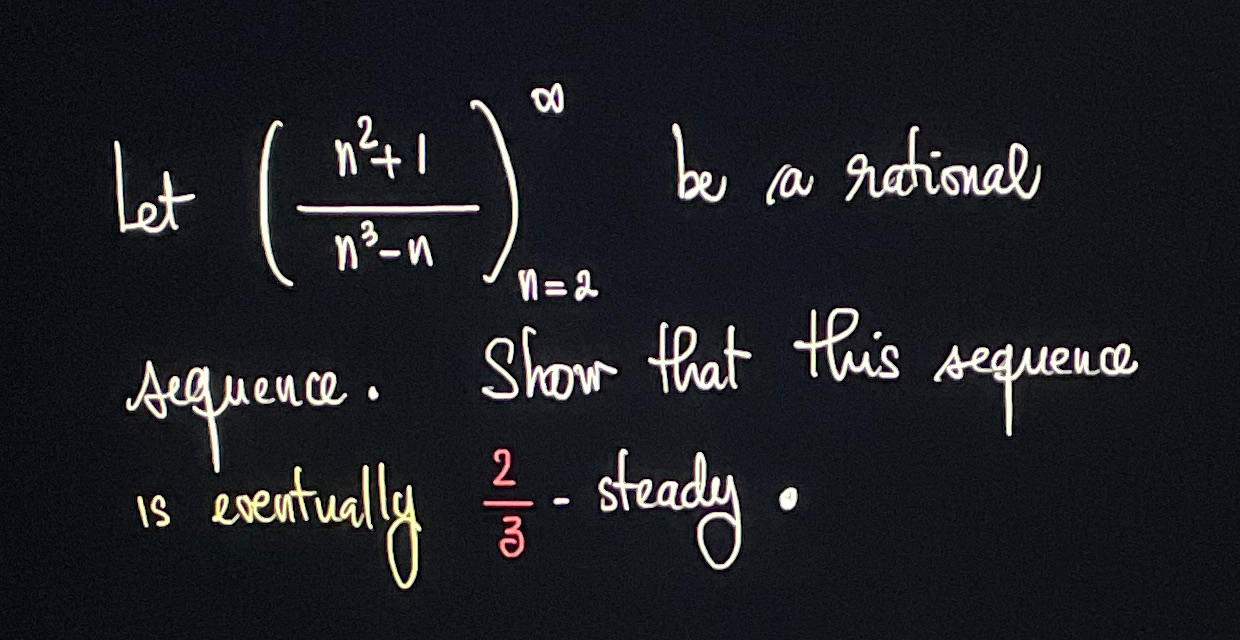 Let ( n²+1 / n³-n )^∞_{n=2} be a rational
sequence. Show that this sequence
is eventually 2/3 - steady.